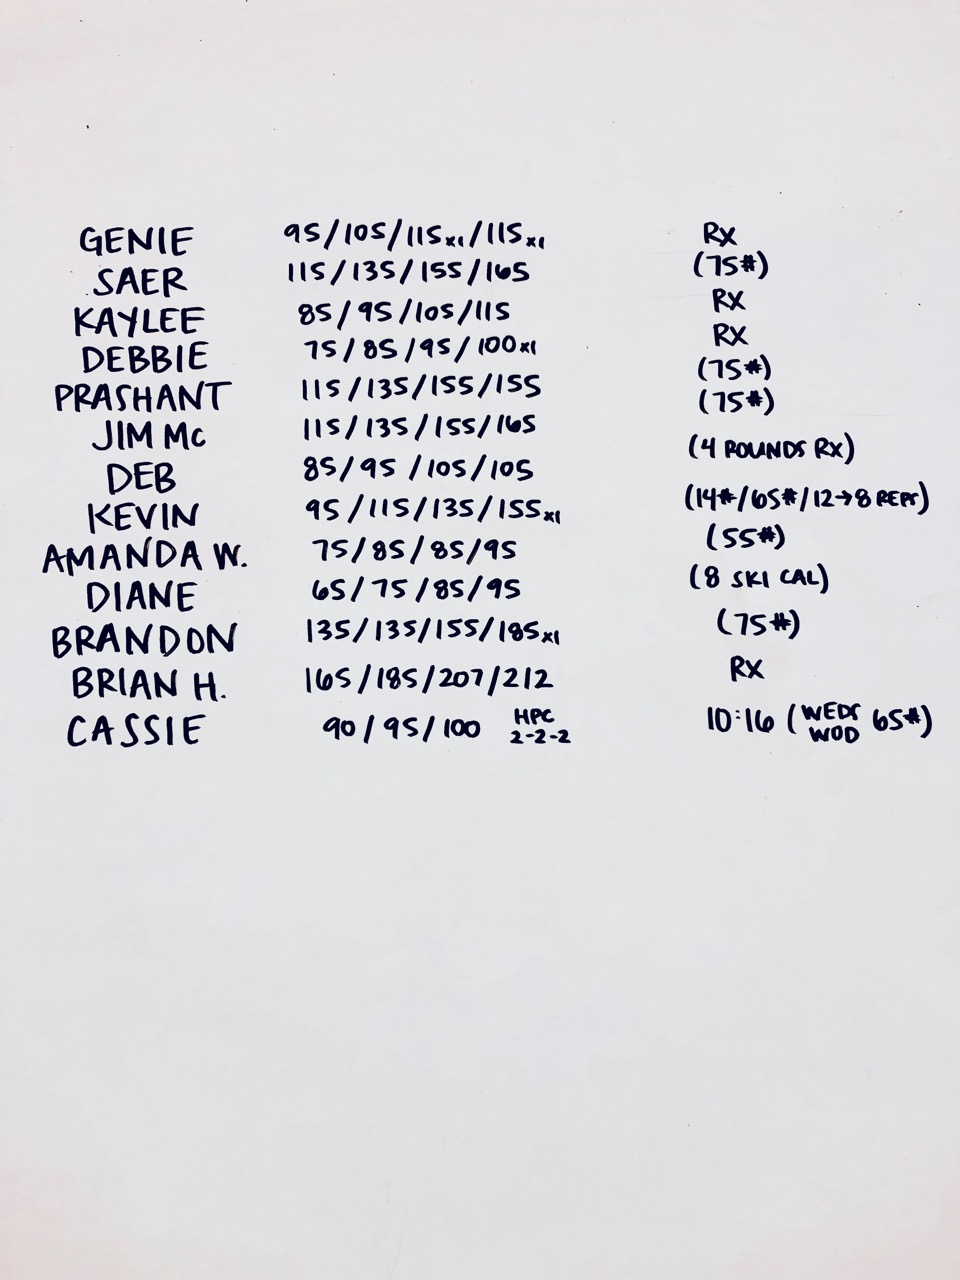 GENIE 95/105/115x1/115x1 Rx
SAER 115/135/155/165 (75#)
KAYLEE 85/95/105/115 Rx
DEBBIE 75/85/95/100x1 Rx
PRASHANT 115/135/155/155 (75#)
JIM Mc 115/135/155/165 (75#)
DEB 85/95/105/105 (4 ROUNDS Rx)
KEVIN 95/115/135/155x1 (14#/65#/12→8 REPS)
AMANDA W. 75/85/85/95 (55#)
DIANE 65/75/85/95 (8 SKI CAL)
BRANDON 135/135/155/185x1 (75#)
BRIAN H. 165/185/207/212 Rx
CASSIE 90/95/100 HPC 2-2-2 10:16 (WEDS WOD 65#)